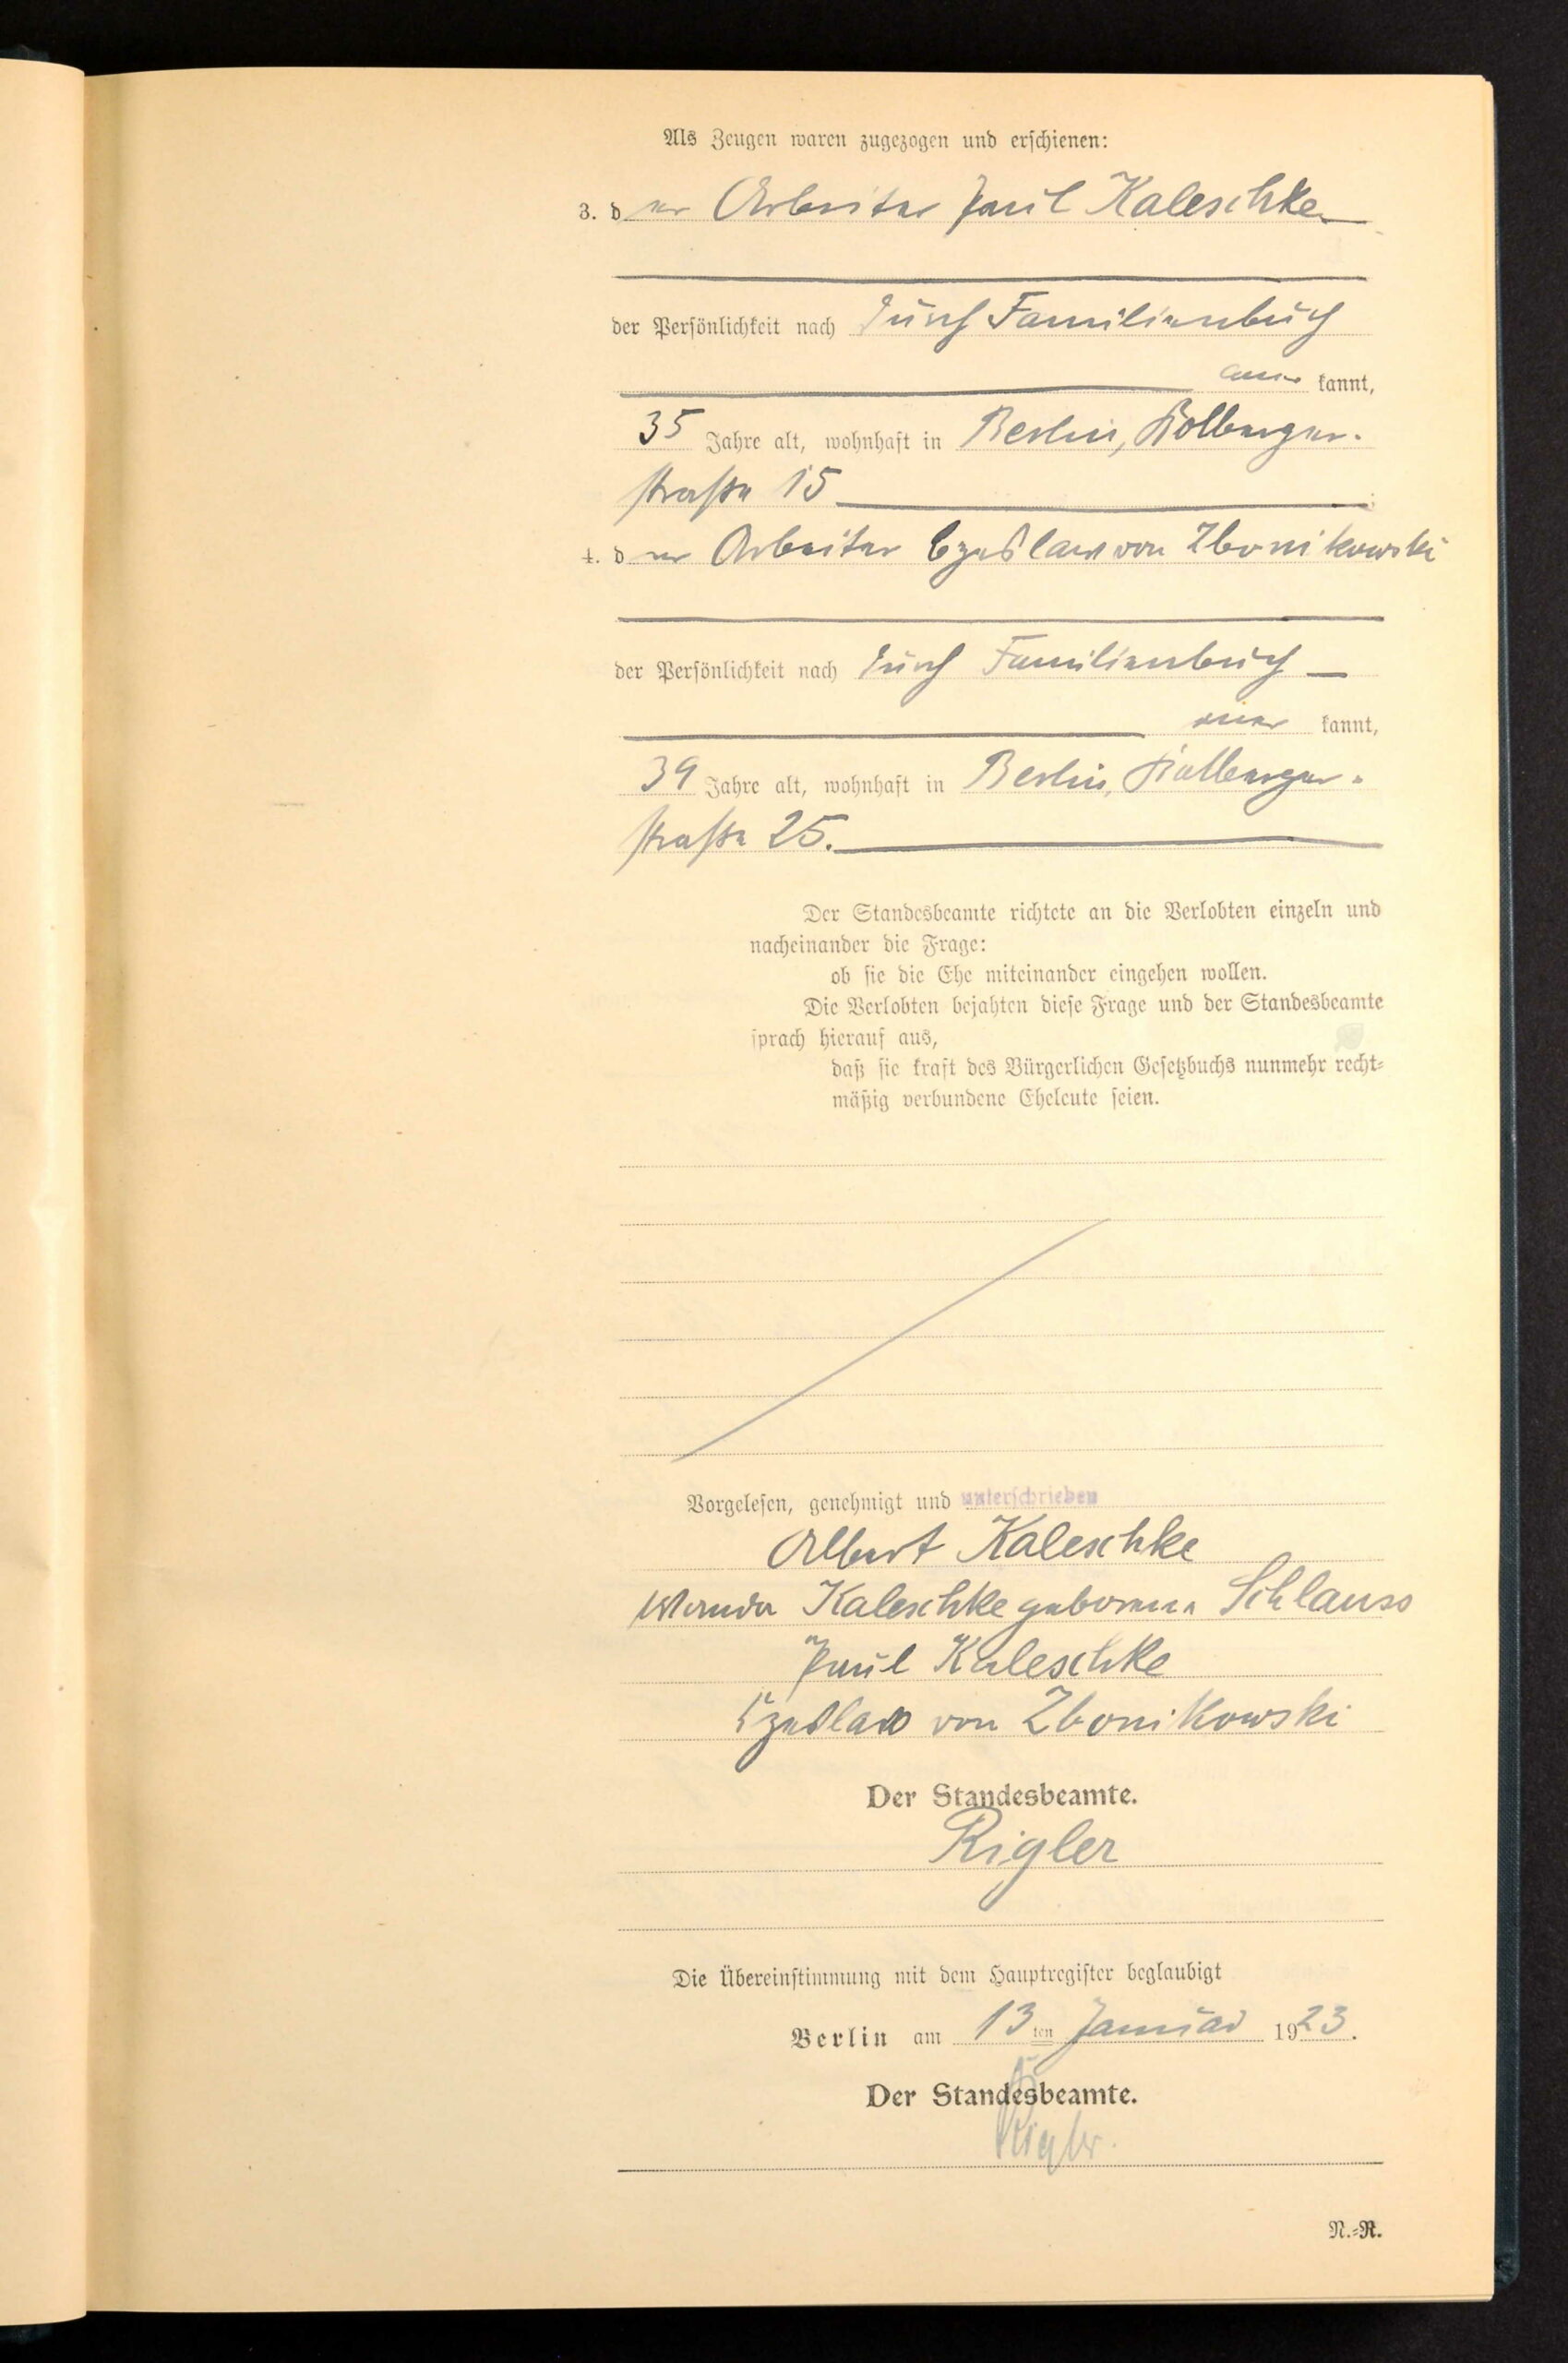 Als Zeugen waren zugezogen und erschienen:
3. der Arbeiter Paul Kaleschke
der Persönlichkeit nach durch Familienbuch
aner kannt,
35 Jahre alt, wohnhaft in Berlin, Kolberger-
straße 15
4. der Arbeiter Czeslaw von Zbonikowski
der Persönlichkeit nach durch Familienbuch
aner kannt,
39 Jahre alt, wohnhaft in Berlin, Kolberger-
straße 25.
Der Standesbeamte richtete an die Verlobten einzeln und
nacheinander die Frage:
ob sie die Ehe miteinander eingehen wollen.
Die Verlobten bejahten diese Frage und der Standesbeamte
sprach hierauf aus,
daß sie kraft des Bürgerlichen Gesetzbuchs nunmehr recht-
mäßig verbundene Eheleute seien.
Vorgelesen, genehmigt und unterschrieben
Albert Kaleschke
Wanda Kaleschke geborene Schlauss
Paul Kaleschke
Czeslaw von Zbonikowski
Der Standesbeamte.
Rigler
Die Übereinstimmung mit dem Hauptregister beglaubigt
Berlin am 13ten Januar 1923.
Der Standesbeamte.
Rigler.
N.-R.